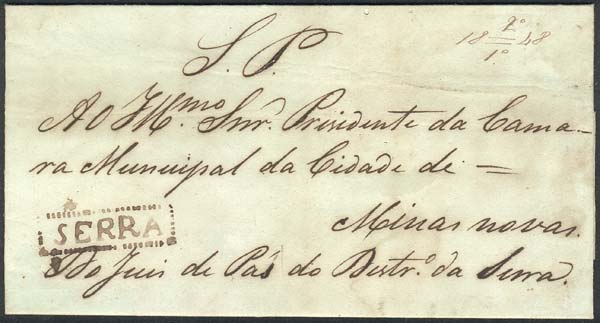 S. P.
18 2º/1º 48
Ao Ill.mo Snr. Prisidente da Cama-
ra Municipal da Cidade de =
Minas novas.
SERRA
Do Juis de Pás do Distr.º da Serra.